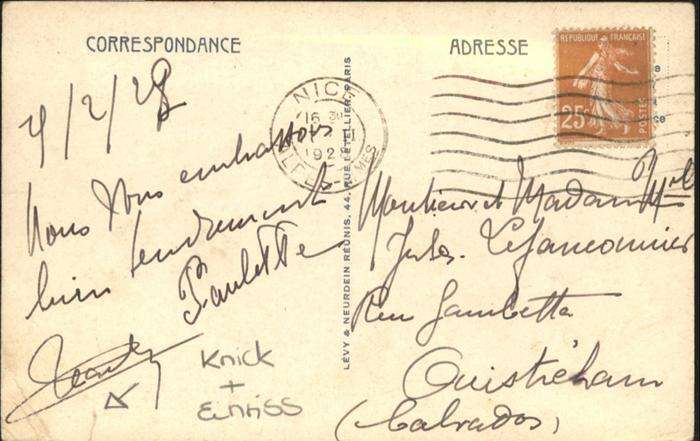 CORRESPONDANCE
ADRESSE
REPUBLIQUE FRANÇAISE
25c
POSTES
NICE
16
192
ALPES MMES
LEVY & NEURDEIN RÉUNIS, 44, RUE LETELLIER, PARIS
4/2/28
Nous vous embrassons
bien tendrement
Paulette
Knick
+
Monsieur et Madame
Jules
Rue Gambetta
Ouistreham
(Calvados)